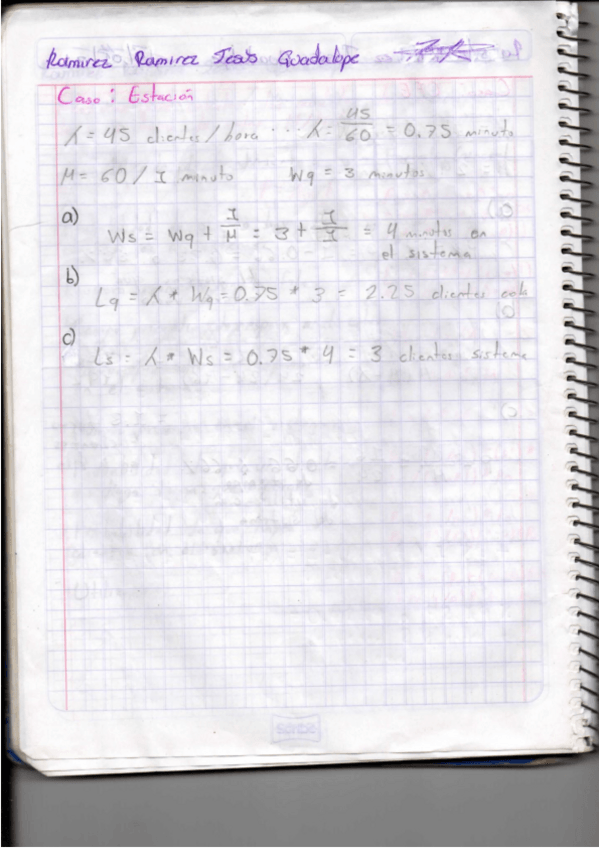 Ramirez Ramirez Jesus Guadalupe
Caso: Estación
λ = 45 clientes / hora ... λ = 45/60 = 0.75 minuto
M = 60 / 1 minuto Wq = 3 minutos
a)
Ws = Wq + 1/M = 3 + 1/1 = 4 minutos en
el sistema
b)
Lq = λ * Wq = 0.75 * 3 = 2.25 clientes cola
c)
Ls = λ * Ws = 0.75 * 4 = 3 clientes sistema